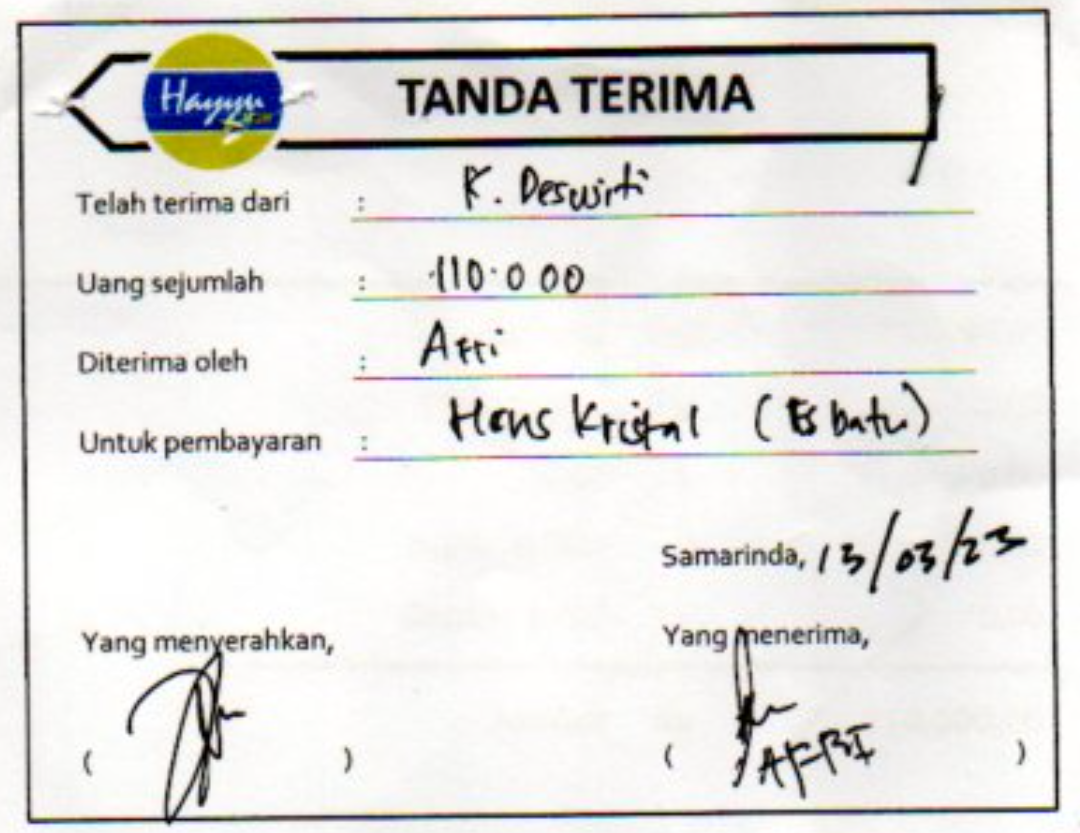 Hayyu
TANDA TERIMA
Telah terima dari : K. Deswirti
Uang sejumlah : 110.000
Diterima oleh : Afri
Untuk pembayaran : Hens Kristal (Es batu)
Samarinda, 13/03/23
Yang menyerahkan,
Yang menerima,
( )
( AFRI )